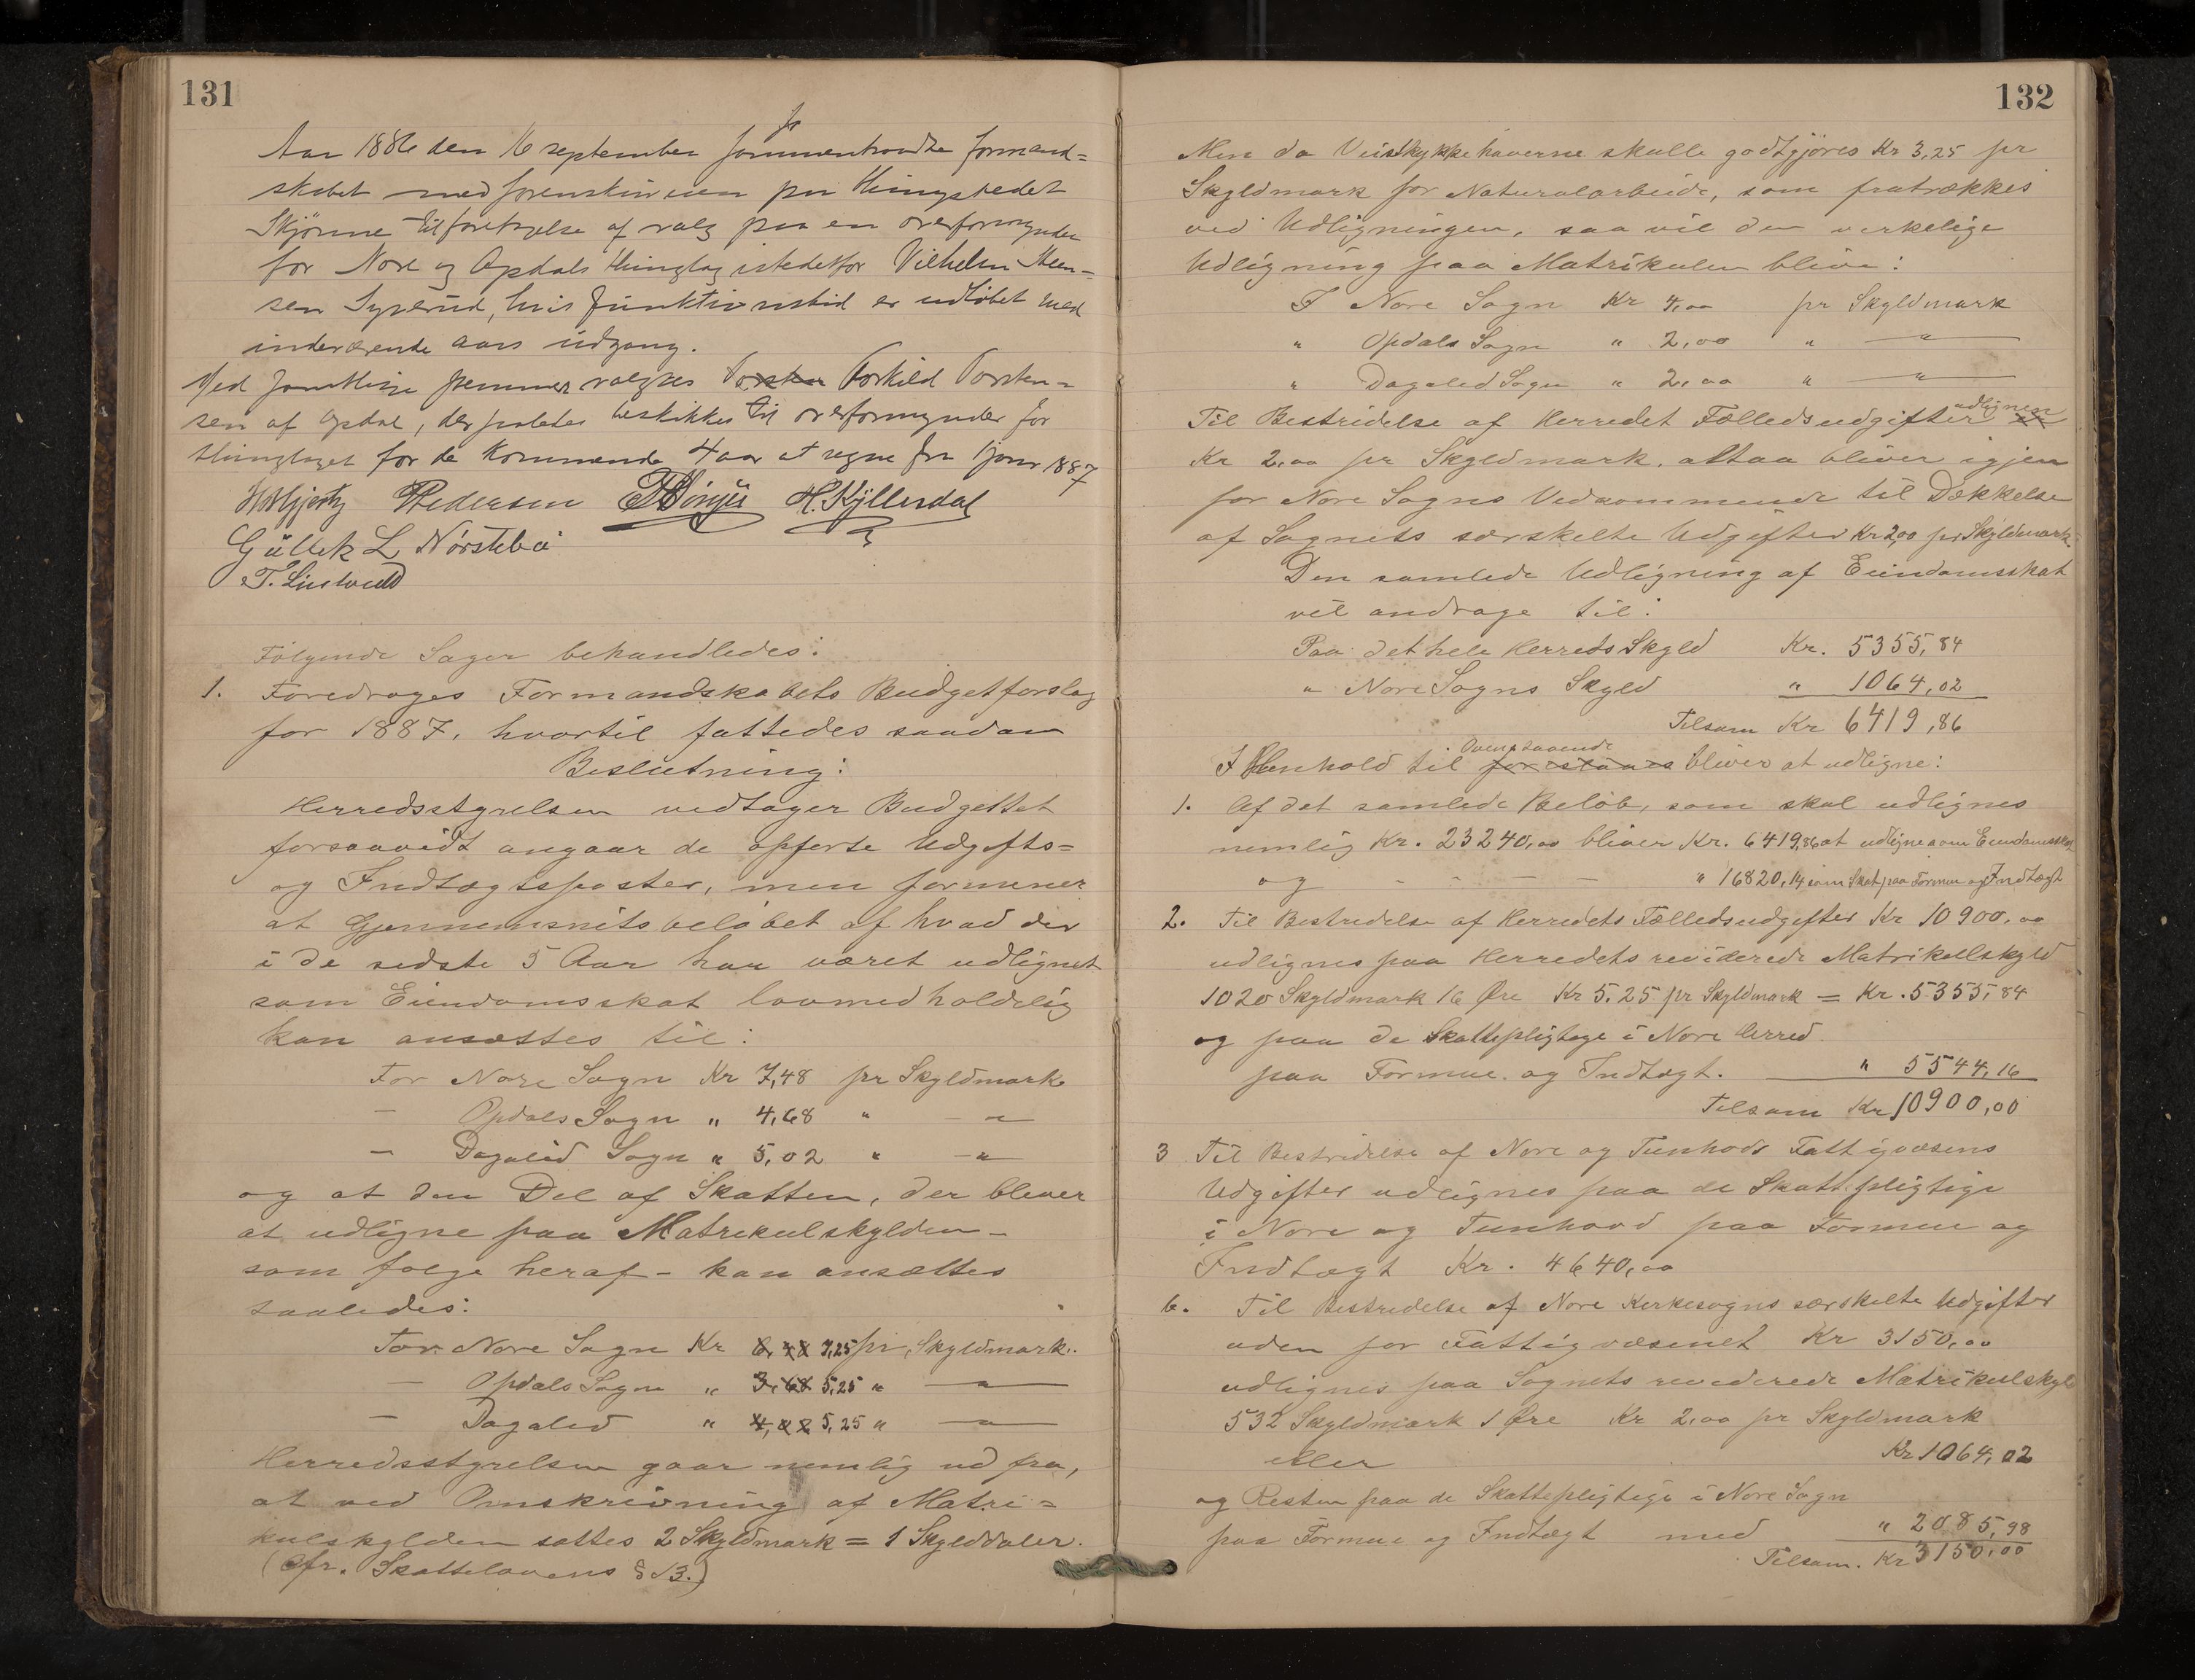 131
Aar 1886 den 16 september sammentraadte formand=
skabet med forenskriveren paa thingstedet
Skjønne til foretagelse af valg paa en overformynder
for Nore og Opdals thinglag istedetfor Vilhelm Steen=
sen Syverud, hvis funktionstid er udløbet med
indeværende aars udgang.
Med samtlige stemmer valgtes Torsten Torkild Torsten=
sen af Opdal, der saaledes beskikkes til overformynder for
thinglaget for de kommende 4 aar at regne fra 1 januar 1887
Pedersen TBønsji H. Kyllesdal
Gullek L Nørstebø
T. Lindved
Følgende Sager behandledes:
1. Foredroges Formandskabets Budgetforslag
for 1887, hvortil fattedes saadan
Beslutning:
Herredsstyrelsen vedtager Budgettet
forsaavidt angaar de opførte Udgifts=
og Indtægtsposter, men formener
at Gjennemsnitsbeløbet af hvad der
i de sidste 5 Aar har været udlignet
som Eiendomsskat lovmedholdelig
kan ansættes til:
For Nore Sogn Kr 7,48 pr Skyldmark
— Opdals Sogn " 4,68 " — " —
— Dagalid Sogn " 5,02 " — " —
og at den Del af Skatten, der bliver
at udligne paa Matrikulskylden –
som følge heraf – kan ansættes
saaledes:
For Nore Sogn Kr 6,48 7,25 pr Skyldmark.
— Opdals Sogn " 3,68 5,25 " — " —
— Dagalid " 4,02 5,25 " — " —
Herredsstyrelsen gaar nemlig ud fra,
at ved Omskrivning af Matri=
kulskylden sættes 2 Skyldmark = 1 Skylddaler.
(Cfr. Skattelovens § 13.)
132
Men da Veistykkehaverne skulle godtgjøres Kr 3,25 pr
Skyldmark for Naturalarbeide, som fratrækkes
ved Udligningen, saa vil den virkelige
Udligning paa Matrikulen blive:
I Nore Sogn Kr 4,00 pr Skyldmark
" Opdals Sogn " 2,00 " — " —
" Dagalid Sogn " 2,00 " — " —
Til Bestridelse af Herredet Fælledsudgifter udlignes
Kr 2,00 pr Skyldmark, altsaa bliver igjen
for Nore Sogns Vedkommende til Dækkelse
af Sognets særskilte Udgifter Kr 2,00 pr Skyldmark.
Den samlede Udligning af Eiendomsskat
vil andrage til:
Paa det hele Herreds Skyld Kr. 5355,84
" Nore Sogns Skyld " 1064,02
Tilsam Kr 6419,86
I Henhold til Ovenstaaende bliver at udligne:
1. Af det samlede Beløb, som skal udlignes
nemlig Kr. 23240,00 bliver Kr. 6419,86 at udligne som Eiendomsskat
og - - — — " 16820,14 som Skat paa Formue og Indtægt
2. Til Bestridelse af Herredets Fælledsudgifter Kr 10900,00
udlignes paa Herredets reviderede Matrikulskyld
1020 Skyldmark 16 Øre Kr 5,25 pr Skyldmark = Kr. 5355,84
og paa de Skattepligtige i Nore Herred
paa Formue og Indtægt. " 5544,16
Tilsam Kr 10900,00
3 Til Bestridelse af Nore og Tunhovds Fattigvæsens
Udgifter udlignes paa de Skattepligtige
i Nore og Tunhovd paa Formue og
Indtægt Kr. 4640,00
6. Til Bestridelse af Nore Kirkesogns særskilte Udgifter
uden for Fattigvæsenet Kr 3150,00
udlignes paa Sognets reviderede Matrikulskyld
532 Skyldmark 1 Øre Kr 2,00 pr Skyldmark
eller Kr 1064,02
og Resten paa de Skattepligtige i Nore Sogn
paa Formue og Indtægt med " 2085,98
Tilsam. Kr 3150,00